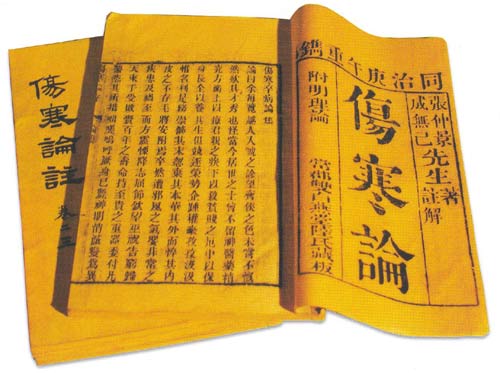 同治庚午年重鐫
張仲景先生著
成無己先生註解
傷寒論
附明理論 常郡雙白燕堂陸氏藏板
傷寒卒病論集
論曰余每覽越人入虢之診望齊侯之色未嘗不慨
然歎其才秀也怪當今居世之士曾不留神醫藥精
究方術上以療君親之疾下以救貧賤之厄中以保
身長全以養其生但競逐榮勢企踵權豪孜孜汲汲
惟名利是務崇飾其末忽棄其本華其外而悴其內
皮之不存毛將安附焉卒然遭邪風之氣嬰非常之
疾患及禍至而方震慄降志屈節欽望巫祝告窮歸
天束手受敗賚百年之壽命持至貴之重器委付凡
醫恣其所措咄嗟嗚呼厥身已斃神明消滅變為異
傷寒論註 卷二三